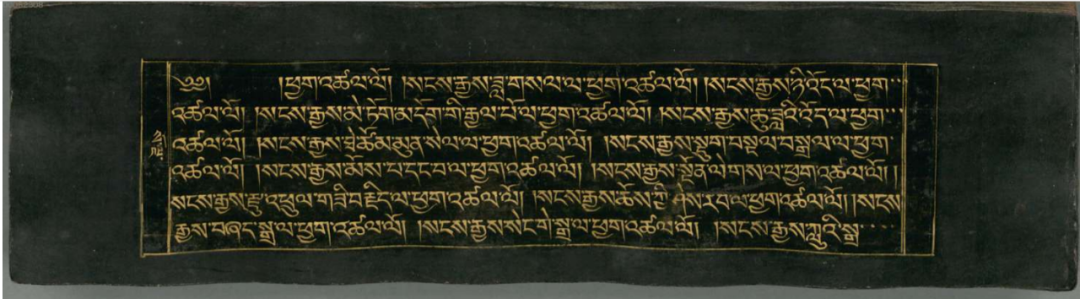 ༄༅། །ཕྱག་འཚལ་ལོ། །སངས་རྒྱས་ཟླ་གསལ་ལ་ཕྱག་འཚལ་ལོ། །སངས་རྒྱས་ཉི་འོད་ལ་ཕྱག་
འཚལ་ལོ། །སངས་རྒྱས་མེ་ཏོག་མདོག་གི་རྒྱལ་པོ་ལ་ཕྱག་འཚལ་ལོ། །སངས་རྒྱས་ཆུ་ཟླའི་འོད་ལ་ཕྱག་
འཚལ་ལོ། །སངས་རྒྱས་ཐེ་ཚོམ་མུན་སེལ་ལ་ཕྱག་འཚལ་ལོ། །སངས་རྒྱས་སྡུག་བསྔལ་བསྒྲལ་ལ་ཕྱག་
འཚལ་ལོ། །སངས་རྒྱས་མོས་པ་དང་བ་ལ་ཕྱག་འཚལ་ལོ། །སངས་རྒྱས་སྤྲིན་ལེགས་ལ་ཕྱག་འཚལ་ལོ། །
སངས་རྒྱས་རྫུ་འཕྲུལ་གཟི་བརྗིད་ལ་ཕྱག་འཚལ་ལོ། །སངས་རྒྱས་ཆོས་ཀྱི་ཤེས་རབ་ལ་ཕྱག་འཚལ་ལོ། །སངས
རྒྱས་བཞད་སྒྲ་ལ་ཕྱག་འཚལ་ལོ། །སངས་རྒྱས་སེངྒེ་སྒྲ་ལ་ཕྱག་འཚལ་ལོ། །སངས་རྒྱས་ཀླུའི་སྒྲ་